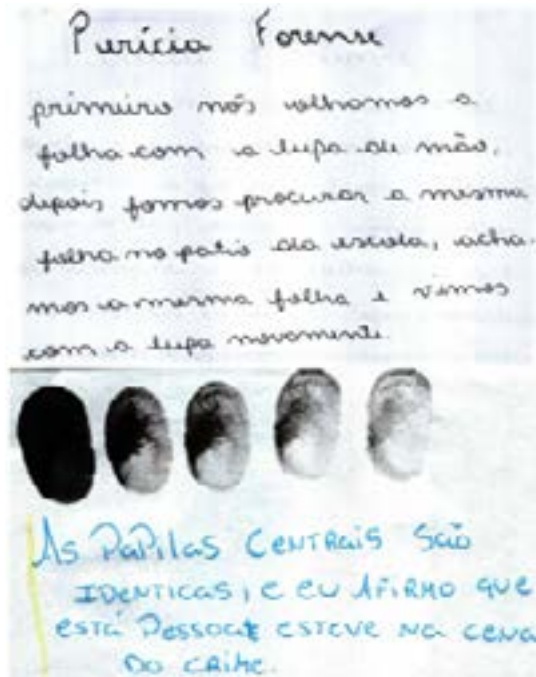 Perícia Forense
primeiro nós olhamos a
folha com a lupa de mão,
depois fomos procurar a mesma
folha no patio da escola, acha-
mos a mesma folha e vimos
com a lupa novamente.
As PaPilas CENTRAIS São
IDENTICAS, E EU AFIRMO QUE
ESTÁ PESSOA ESTEVE NA CENA
DO CRIME.